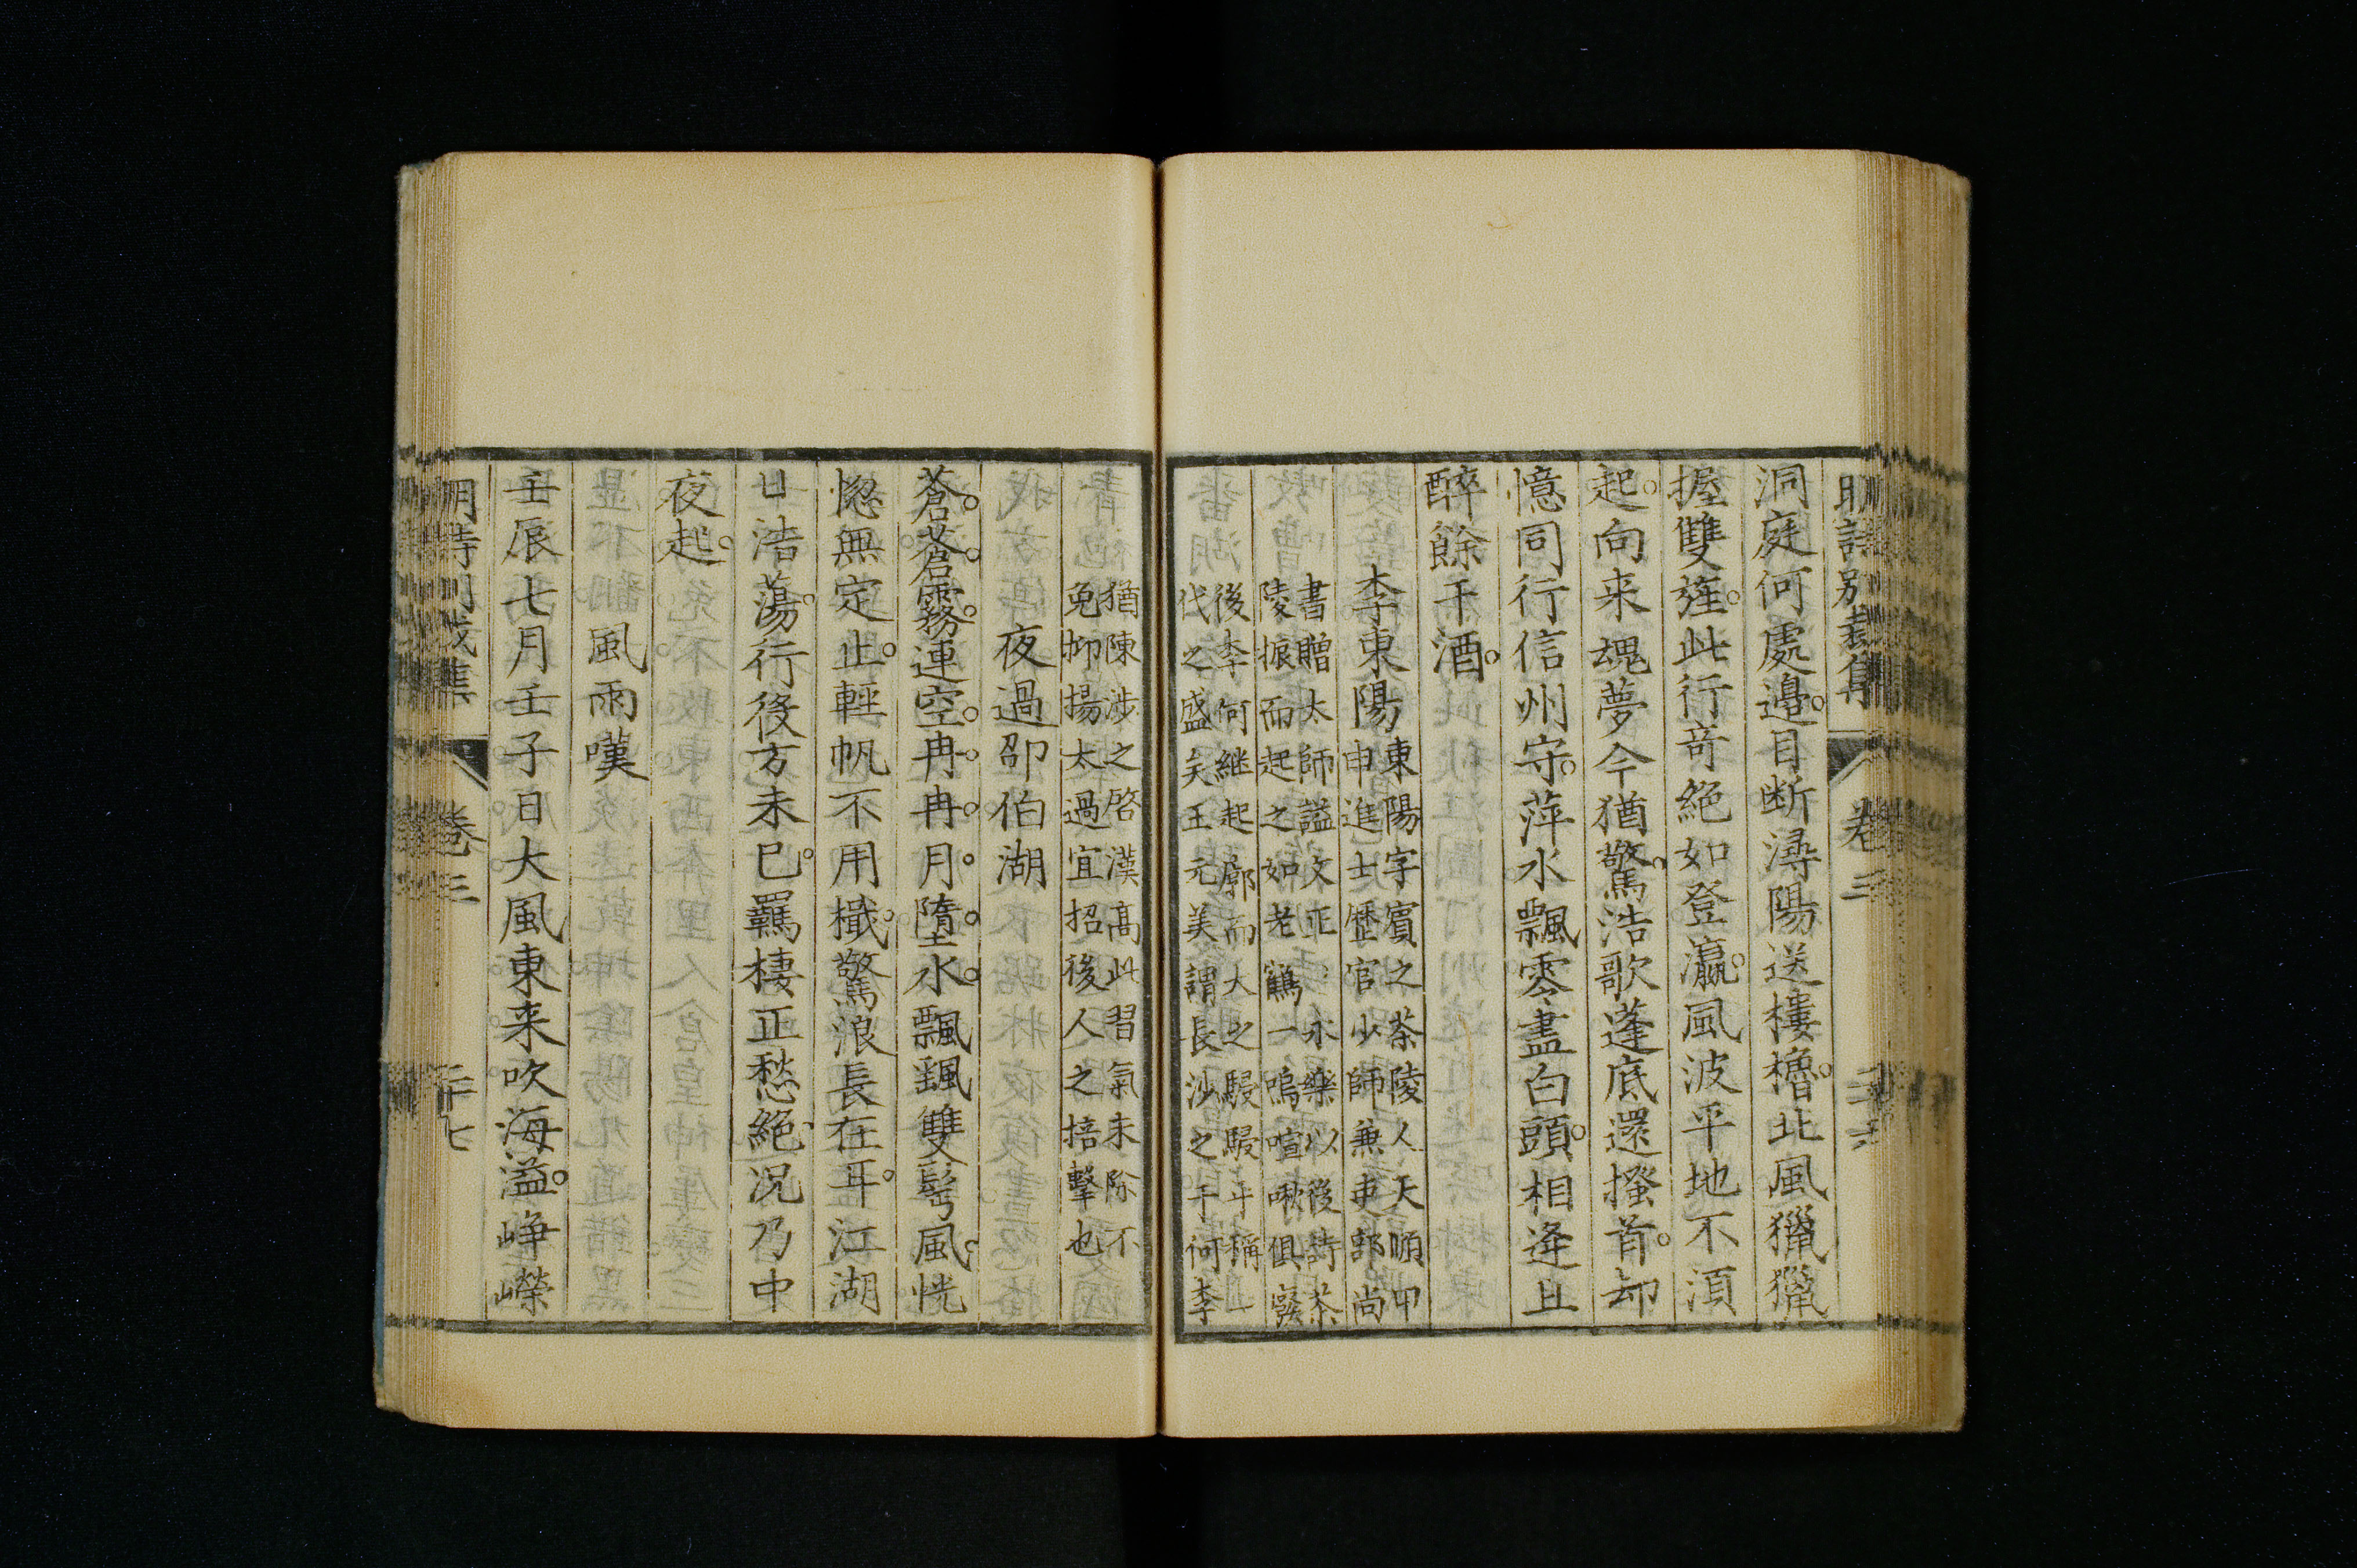 明詩別裁集 卷三 二十六
洞庭何處邉目断潯陽送樓櫓北風獵獵
握雙旌此行竒絕如登瀛風波平地不湏
起向来魂夢今猶驚浩歌蓬底還搔首却
憶同行信州守萍水飄零盡白頭相逢且
醉餘干酒
李東陽
東陽字賓之茶陵人天順甲
申進士歷官少師兼吏部尚
書贈太師諡文正永樂以後詩茶
陵振而起之如老鶴一鳴喧啾俱廢
後李何継起廓而大之駸駸乎稱一
代之盛矣王元美謂長沙之于何李
猶陳涉之啓漢髙此習氣未除不
免抑揚太過宜招後人之掊擊也
夜過卲伯湖
蒼蒼霧連空冉冉月墮水飄颻雙鬂風恍
惚無定止輕帆不用檝驚浪長在耳江湖
日浩蕩行役方未已羈棲正愁絕况乃中
夜起
風雨嘆
壬辰七月壬子日大風東来吹海溢峥嶸
明詩別裁集 卷三 二十七